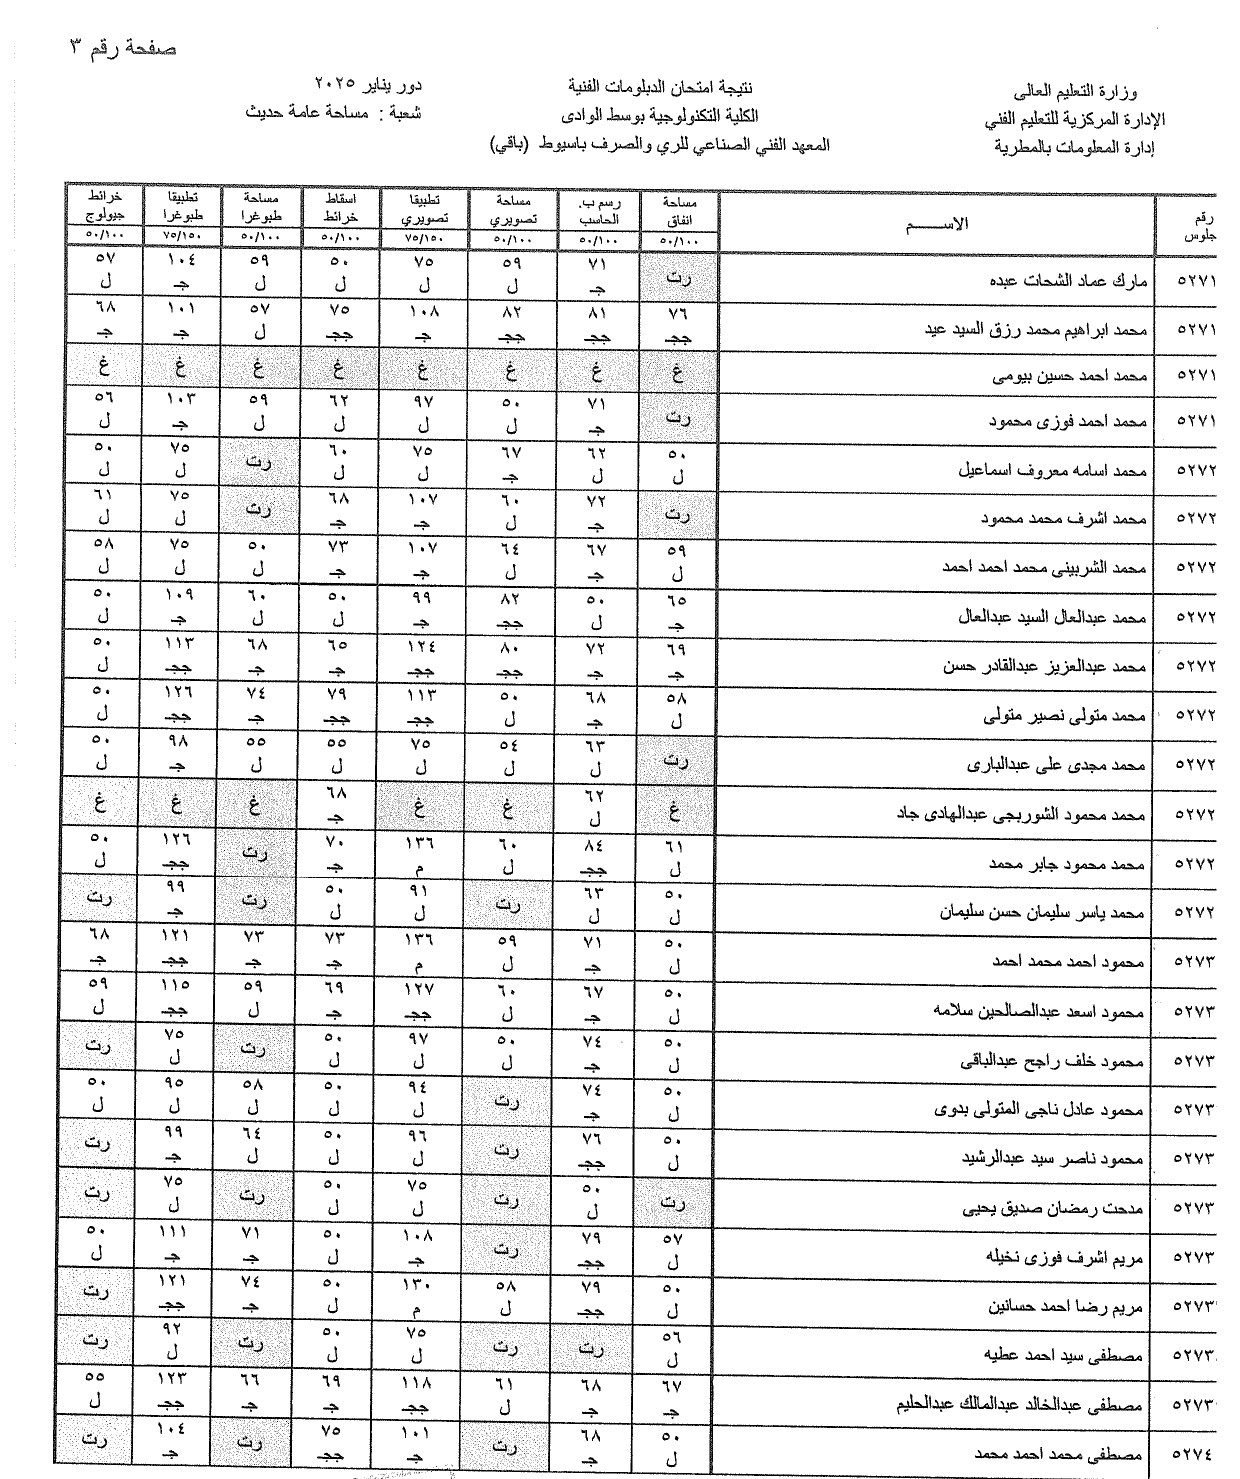 صفحة رقم ٣
وزارة التعليم العالى
الإدارة المركزية للتعليم الفني
إدارة المعلومات بالمطرية
نتيجة امتحان الدبلومات الفنية
الكلية التكنولوجية بوسط الوادى
المعهد الفني الصناعي للري والصرف باسيوط (باقي)
دور يناير ٢٠٢٥
شعبة : مساحة عامة حديث
رقم جلوس الاســـم مساحة انفاق رسم ب. الحاسب مساحة تصويري تطبيقا تصويري اسقاط خرائط مساحة طبوغرا تطبيقا طبوغرا خرائط جيولوج
٥٠/١٠٠ ٥٠/١٠٠ ٥٠/١٠٠ ٧٥/١٥٠ ٥٠/١٠٠ ٥٠/١٠٠ ٧٥/١٥٠ ٥٠/١٠٠
٥٢٧١ مارك عماد الشحات عبده رت ٧١ ٥٩ ٧٥ ٥٠ ٥٩ ١٠٤ ٥٧
جـ ل ل ل ل جـ ل
٥٢٧١ محمد ابراهيم محمد رزق السيد عيد ٧٦ ٨١ ٨٢ ١٠٨ ٧٥ ٥٧ ١٠١ ٦٨
ججـ ججـ ججـ جـ ججـ ل جـ جـ
٥٢٧١ محمد احمد حسين بيومى غ غ غ غ غ غ غ غ
٥٢٧١ محمد احمد فوزى محمود رت ٧١ ٥٠ ٩٧ ٦٢ ٥٩ ١٠٣ ٥٦
جـ ل ل ل ل جـ ل
٥٢٧٢ محمد اسامه معروف اسماعيل ٥٠ ٦٢ ٦٧ ٧٥ ٦٠ رت ٧٥ ٥٠
ل ل جـ ل ل ل ل
٥٢٧٢ محمد اشرف محمد محمود رت ٧٢ ٦٠ ١٠٧ ٦٨ رت ٧٥ ٦١
جـ ل جـ جـ ل ل
٥٢٧٢ محمد الشربينى محمد احمد احمد ٥٩ ٦٧ ٦٤ ١٠٧ ٧٣ ٥٠ ٧٥ ٥٨
ل جـ ل جـ جـ ل ل ل
٥٢٧٢ محمد عبدالعال السيد عبدالعال ٦٥ ٥٠ ٨٢ ٩٩ ٥٠ ٦٠ ١٠٩ ٥٠
جـ ل ججـ جـ ل ل جـ ل
٥٢٧٢ محمد عبدالعزيز عبدالقادر حسن ٦٩ ٧٢ ٨٠ ١٢٤ ٦٥ ٦٨ ١١٣ ٥٠
جـ جـ ججـ ججـ جـ جـ ججـ ل
٥٢٧٢ محمد متولى نصير متولى ٥٨ ٦٨ ٥٠ ١١٣ ٧٩ ٧٤ ١٢٦ ٥٠
ل جـ ل ججـ ججـ جـ ججـ ل
٥٢٧٢ محمد مجدى على عبدالبارى رت ٦٣ ٥٤ ٧٥ ٥٥ ٥٥ ٩٨ ٥٠
ل ل ل ل ل جـ ل
٥٢٧٢ محمد محمود الشوربجى عبدالهادى جاد غ ٦٢ غ غ ٦٨ غ غ غ
ل جـ
٥٢٧٢ محمد محمود جابر محمد ٦١ ٨٤ ٦٠ ١٣٦ ٧٠ رت ١٢٦ ٥٠
ل ججـ ل م جـ ججـ ل
٥٢٧٢ محمد ياسر سليمان حسن سليمان ٥٠ ٦٣ رت ٩١ ٥٠ رت ٩٩ رت
ل ل ل ل جـ
٥٢٧٣ محمود احمد محمد احمد ٥٠ ٧١ ٥٩ ١٣٦ ٧٣ ٧٣ ١٢١ ٦٨
ل جـ ل م جـ جـ ججـ جـ
٥٢٧٣ محمود اسعد عبدالصالحين سلامه ٥٠ ٦٧ ٦٠ ١٢٧ ٦٩ ٥٩ ١١٥ ٥٩
ل جـ ل ججـ جـ ل ججـ ل
٥٢٧٣ محمود خلف راجح عبدالباقى ٥٠ ٧٤ ٥٠ ٩٧ ٥٠ رت ٧٥ رت
ل جـ ل ل ل ل
٥٢٧٣ محمود عادل ناجى المتولى بدوى ٥٠ ٧٤ رت ٩٤ ٥٠ ٥٨ ٩٥ ٥٠
ل جـ ل ل ل ل ل
٥٢٧٣ محمود ناصر سيد عبدالرشيد ٥٠ ٧٦ رت ٩٦ ٥٠ ٦٤ ٩٩ رت
ل ججـ ل ل ل جـ
٥٢٧٣ مدحت رمضان صديق يحيى رت ٥٠ رت ٧٥ ٥٠ رت ٧٥ رت
ل ل ل ل
٥٢٧٣ مريم اشرف فوزى نخيله ٥٧ ٧٩ رت ١٠٨ ٥٠ ٧١ ١١١ ٥٠
ل ججـ جـ ل جـ جـ ل
٥٢٧٣ مريم رضا احمد حسانين ٥٠ ٧٩ ٥٨ ١٣٠ ٥٠ ٧٤ ١٢١ رت
ل ججـ ل م ل جـ ججـ
٥٢٧٣ مصطفى سيد احمد عطيه ٥٦ رت رت ٧٥ ٥٠ رت ٩٢ رت
ل ل ل ل
٥٢٧٣ مصطفى عبدالخالد عبدالمالك عبدالحليم ٦٧ ٦٨ ٦١ ١١٨ ٦٩ ٦٦ ١٢٣ ٥٥
جـ جـ ل ججـ جـ جـ ججـ ل
٥٢٧٤ مصطفى محمد احمد محمد ٥٠ ٦٨ رت ١٠١ ٧٥ رت ١٠٤ رت
ل جـ جـ ججـ جـ